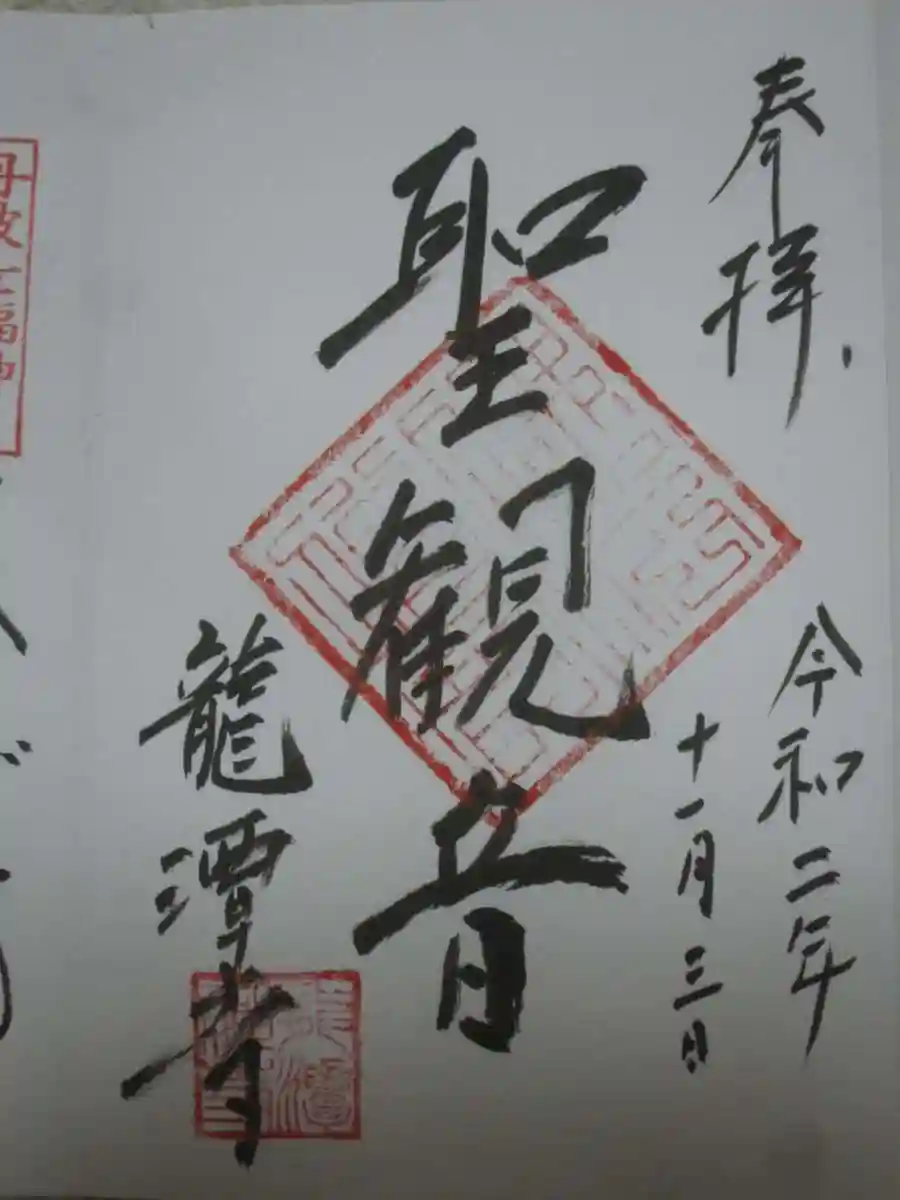 奉拝
令和二年
十一月三日
聖観音
龍潭寺
丹波七福神